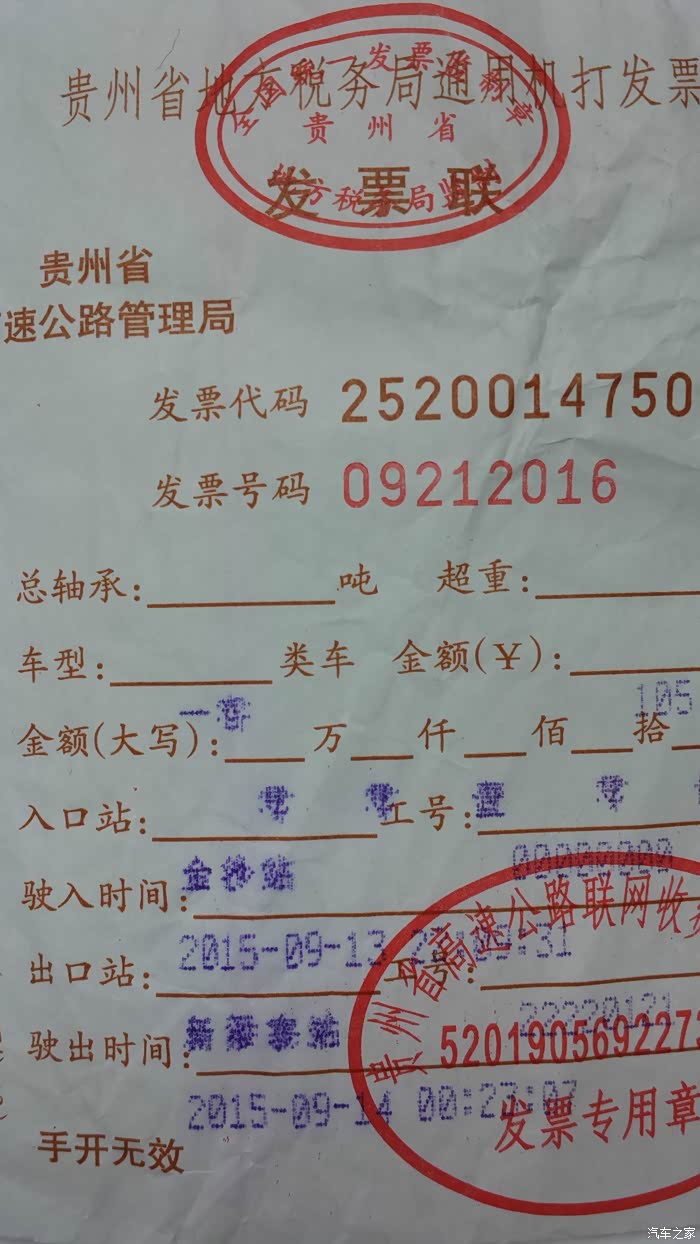 贵州省地方税务局通用机打发票
全国统一发票监制章
贵州省
发票联
地方税务局监制
贵州省
高速公路管理局
发票代码 2520014750
发票号码 09212016
总轴承: 吨 超重:
车型: 类车 金额(¥):
一客 105
金额(大写): 万 仟 佰 拾
零 零 壹 零
入口站: 工号:
金沙站 00000000
驶入时间:
2015-09-13
出口站: 工号:
22220121
驶出时间:
2015-09-14 00:27:07
贵州省高速公路联网收费
520190569227
发票专用章
手开无效
汽车之家